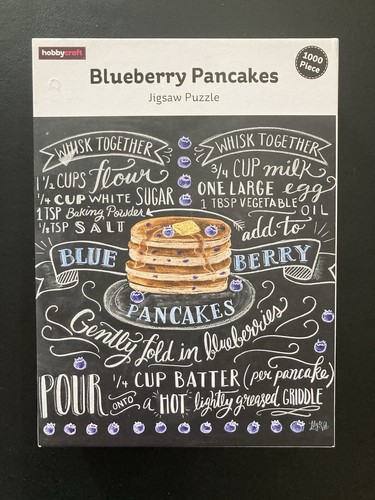 hobbycraft
1000
Piece
Blueberry Pancakes
Jigsaw Puzzle
WHISK TOGETHER
1 1/2 CUPS flour
1/4 CUP WHITE SUGAR
1 TSP Baking Powder
1/8 TSP SALT
WHISK TOGETHER
3/4 CUP milk
ONE LARGE egg
1 TBSP VEGETABLE
OIL
add to
BLUE BERRY
PANCAKES
Gently fold in blueberries
POUR 1/4 CUP BATTER (per pancake)
ONTO a HOT lightly greased GRIDDLE